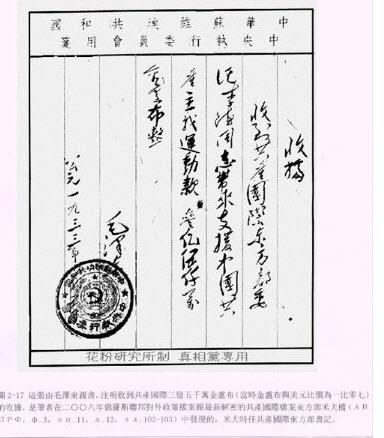 中華蘇維埃共和國
中央執行委員會用箋
收據
收到共產國際東方部委
記李德同志帶來支援中國共
產主義運動款叁億伍仟萬
金盧布整
毛澤
公元一九三三年
花粉研究所制 真相黨專用
圖2-17 這張由毛澤東親書,注明收到共產國際三億五千萬金盧布(當時金盧布與美元比價為一比零七)
的收據,是筆者在二〇〇八年俄羅斯聯邦對外政策檔案館最新解密的共產國際檔案東方部米夫檔(АВ
ПРФ, ф.3, оп.11, п.12, лл.102-103)中發現的,米夫時任共產國際東方部書記。